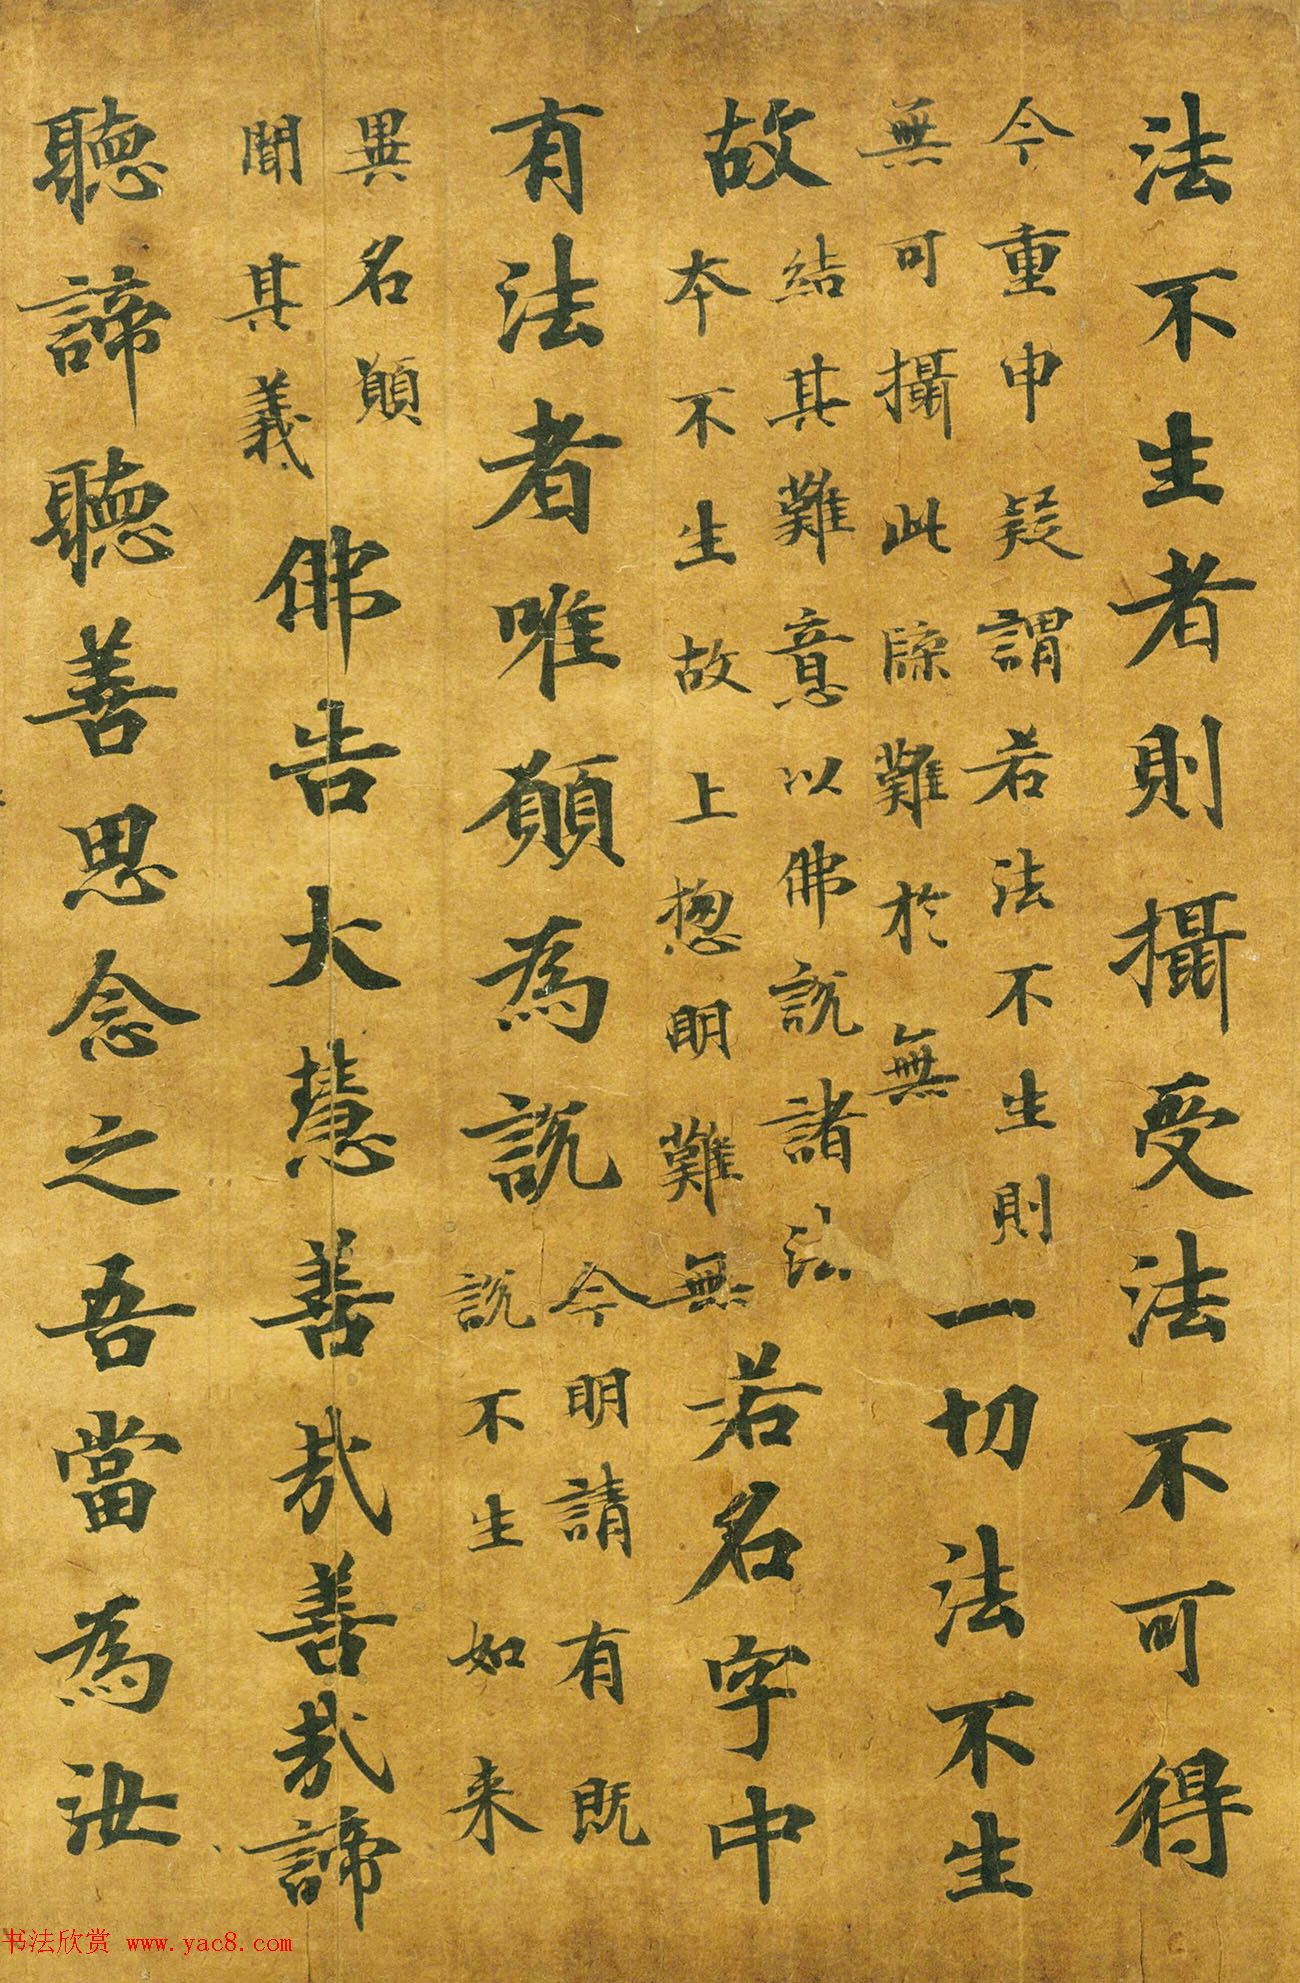 法不生者則攝受法不可得
今重申疑謂若法不生則
無可攝此牒難於無
一切法不生
故
結其難意以佛說諸法
本不生故上惣明難無
若名字中
有法者唯願為說
今明請有既
說不生如来
異名願
聞其義
佛告大慧善哉善哉諦
聽諦聽善思念之吾當為汝
书法欣赏 www.yac8.com